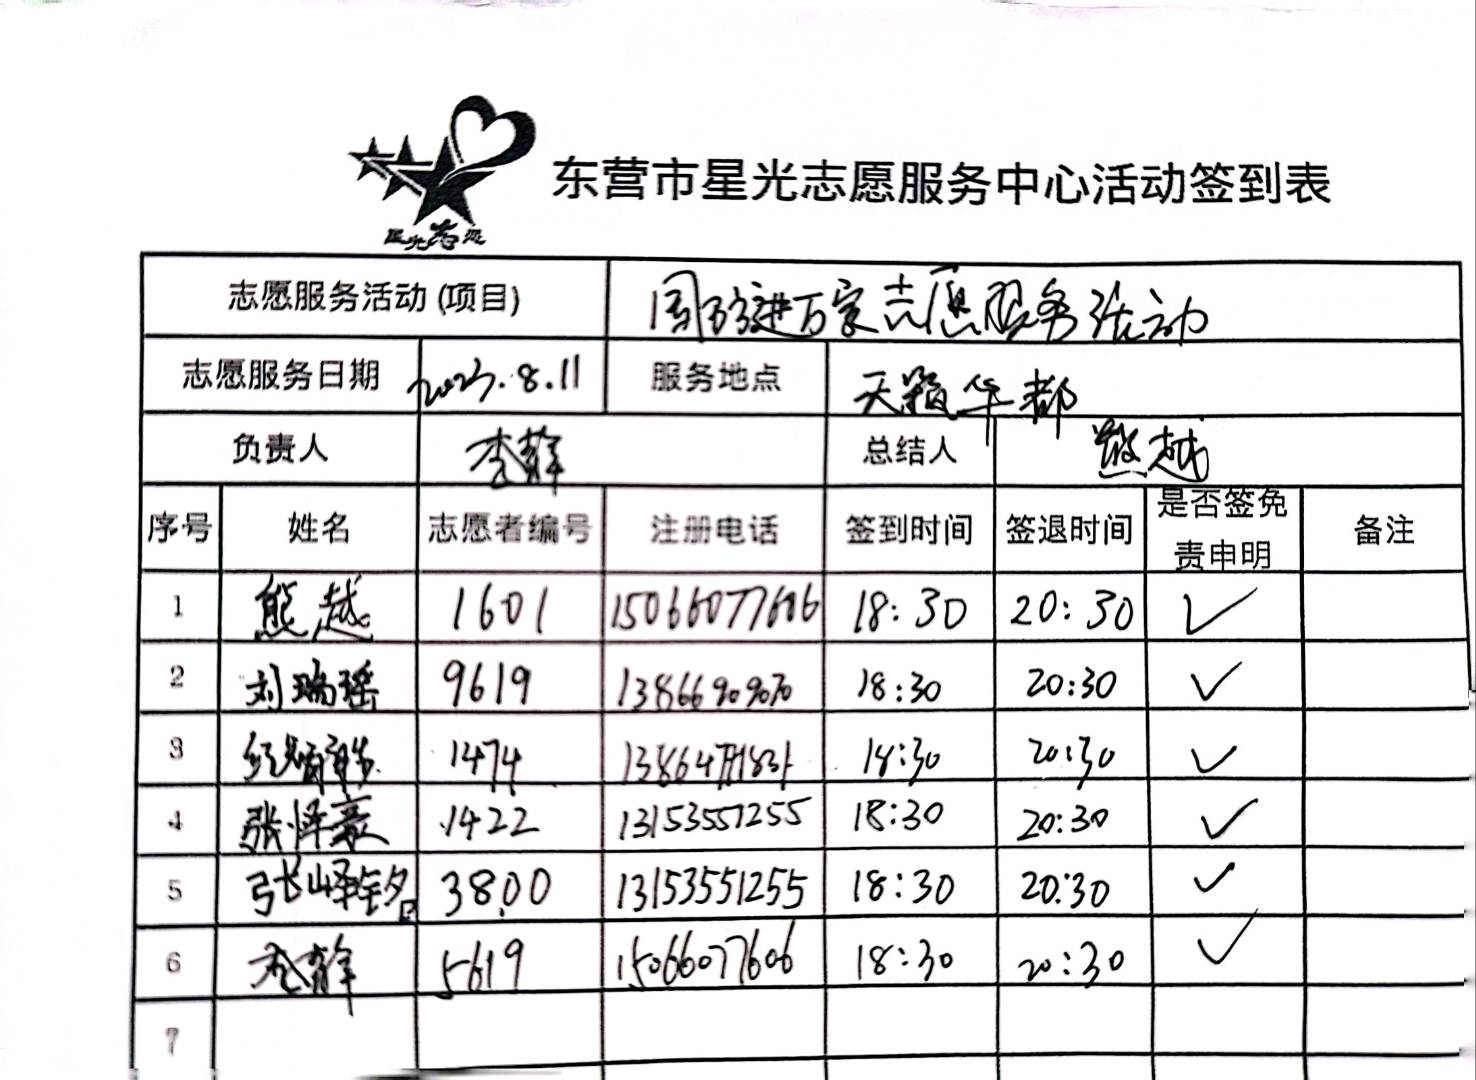 星光志愿
东营市星光志愿服务中心活动签到表
志愿服务活动(项目) 国防进万家志愿服务活动
志愿服务日期 2023.8.11 服务地点 天颐华都
负责人 李静 总结人 熊越
序号 姓名 志愿者编号 注册电话 签到时间 签退时间 是否签免责申明 备注
1 熊越 1601 15066077606 18:30 20:30 ✓
2 刘瑞瑶 9619 13866909070 18:30 20:30 ✓
3 1474 18:30 20:30 ✓
4 张怿豪 1422 13153551255 18:30 20:30 ✓
5 张峄铭 3800 13153551255 18:30 20:30 ✓
6 李静 5619 15066077606 18:30 20:30 ✓
7